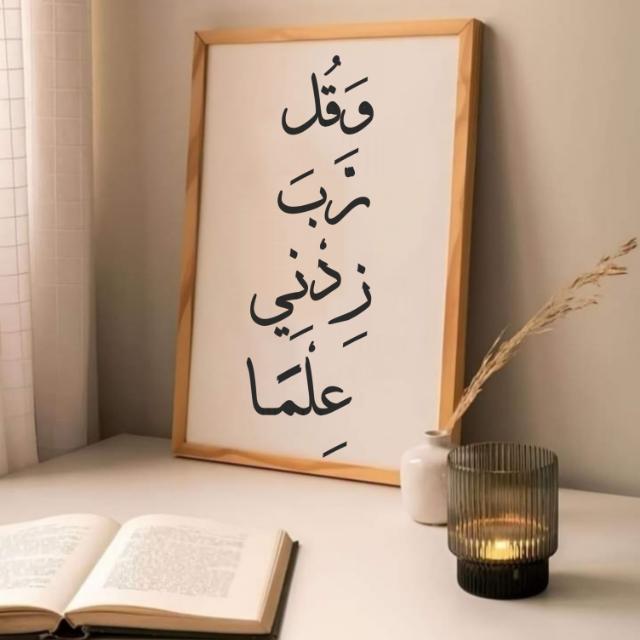 وَقُل
رَّبَ
زِدْنِي
عِلْمَا